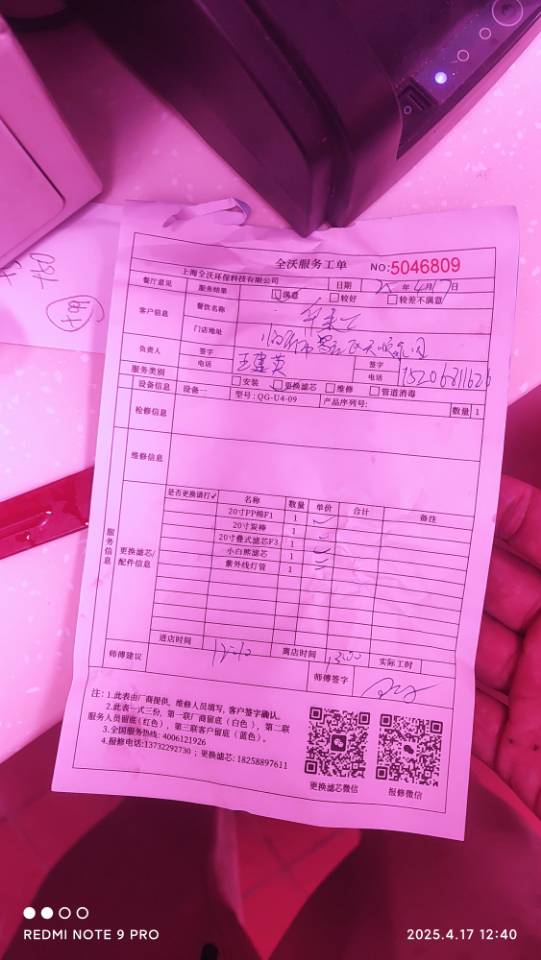 全沃服务工单 NO:5046809
上海全沃环保科技有限公司 日期 25年4月17日
餐厅意见 服务结果 ☑满意 □较好 □较差不满意
客户信息 餐饮名称
门店地址
负责人 签字 签字
电话 王建英 电话 15206811626
服务类别 □安装 ☑更换滤芯 □维修 □管道消毒
设备信息 设备一 型号:QG-U4-09 产品序列号: 数量 1
检修信息
维修信息
服务信息
更换滤芯/配件信息
是否更换请打✓ 名称 数量 单价 合计 备注
20寸PP棉F1 1 ✓
20寸炭棒 1 ✓
20寸叠式滤芯F3 1 ✓
小白熊滤芯 1 ✓
紫外线灯管 1 ✓
进店时间 12:10 离店时间 13:00 实际工时
师傅建议 师傅签字
注:1.此表由厂商提供,维修人员填写,客户签字确认。
2.此表一式三份,第一联厂商留底(白色),第二联
服务人员留底(红色),第三联客户留底(蓝色)。
3.全国服务热线:4006121926
4.报修电话:13732292730;更换滤芯:18258897611
更换滤芯微信 报修微信
REDMI NOTE 9 PRO 2025.4.17 12:40